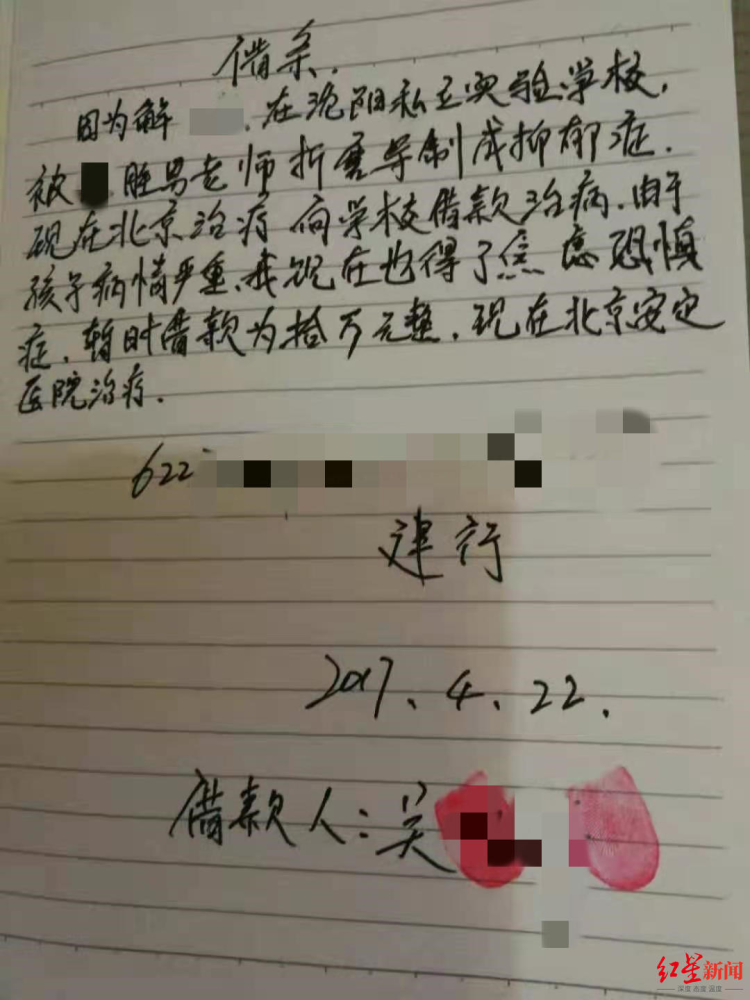 借条.
因为解 . 在沈阳私立实验学校,
被 . 胜男老师折磨导制成抑郁症.
现在北京治疗 向学校借款治病. 由于
孩子病情严重、我现在也得了焦虑恐慎
症. 暂时借款为拾万元整. 现在北京安定
医院治疗.
622
建行
2017. 4. 22.
借款人: 吴
红星新闻
深度 态度 温度